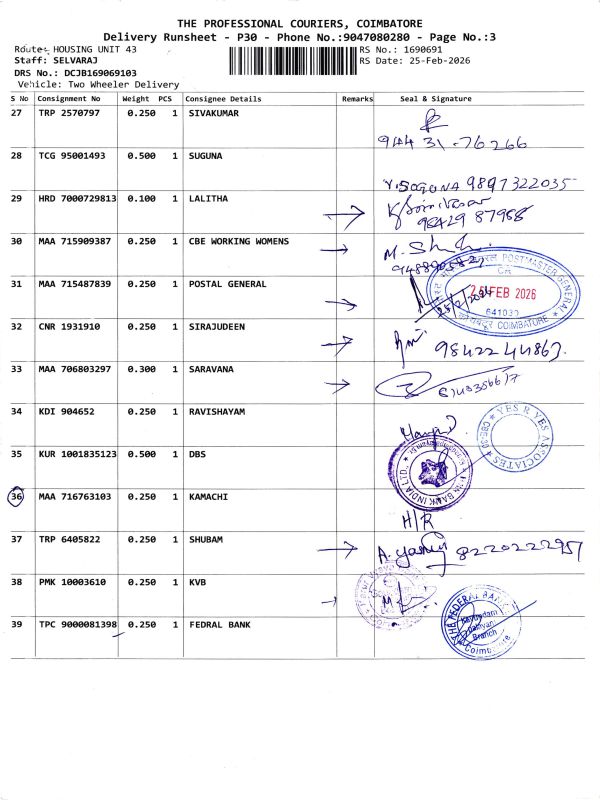 THE PROFESSIONAL COURIERS, COIMBATORE
Delivery Runsheet - P30 - Phone No.:9047080280 - Page No.:3
Route: HOUSING UNIT 43
RS No.: 1690691
Staff: SELVARAJ
RS Date: 25-Feb-2026
DRS No.: DCJB169069103
Vehicle: Two Wheeler Delivery
S No Consignment No Weight PCS Consignee Details Remarks Seal & Signature
27 TRP 2570797 0.250 1 SIVAKUMAR
944 31-76266
28 TCG 95001493 0.500 1 SUGUNA
V.SUGUNA 9897322035
29 HRD 7000729813 0.100 1 LALITHA
98429 87988
30 MAA 715909387 0.250 1 CBE WORKING WOMENS
31 MAA 715487839 0.250 1 POSTAL GENERAL
POSTMASTER GENERAL
FEB 2026
641030
COIMBATORE
32 CNR 1931910 0.250 1 SIRAJUDEEN
9842244863.
33 MAA 706803297 0.300 1 SARAVANA
34 KDI 904652 0.250 1 RAVISHAYAM
YES R YES ASSOCIATES
CBE-30
35 KUR 1001835123 0.500 1 DBS
BANK INDIA LTD.
36 MAA 716763103 0.250 1 KAMACHI
H/R
37 TRP 6405822 0.250 1 SHUBAM
8220222957
38 PMK 10003610 0.250 1 KVB
39 TPC 9000081398 0.250 1 FEDRAL BANK
FEDERAL BANK
Branch
Coimbatore